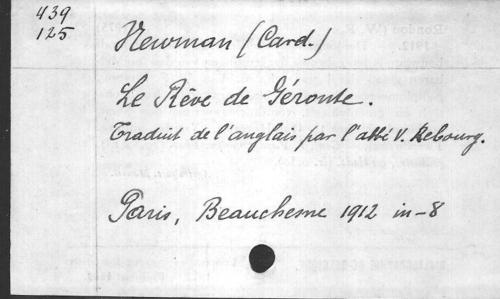 439
125
Newman (Card.)
Le Rêve de Géronte.
Traduit de l'anglais par l'abbé V. Rebourg.
Paris, Beauchesne 1912 in-8